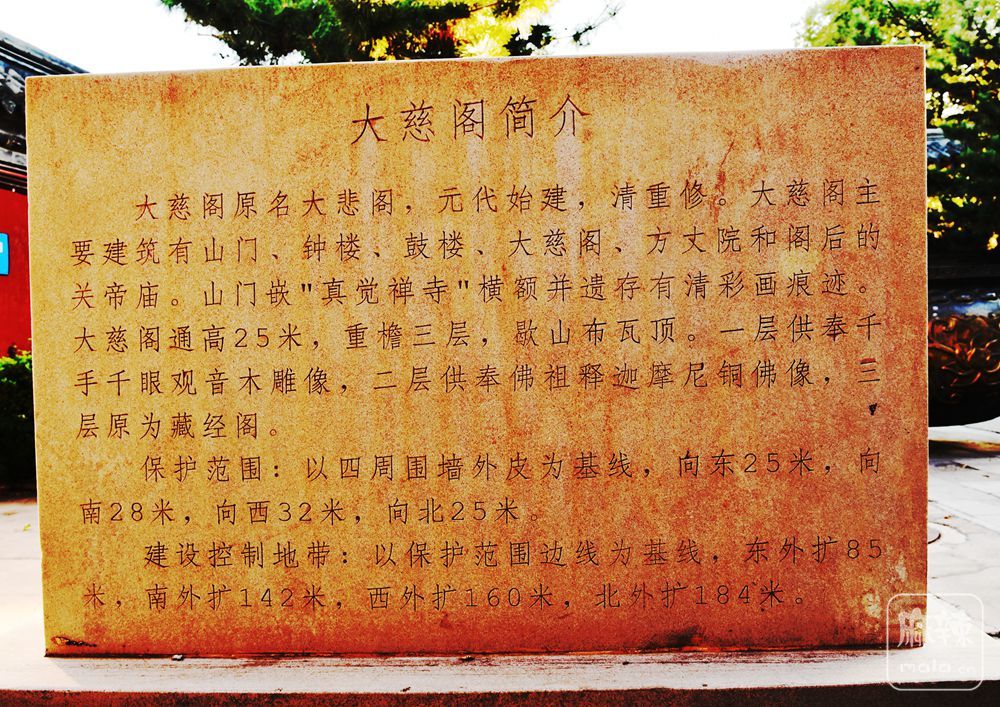 大慈阁简介
大慈阁原名大悲阁，元代始建，清重修。大慈阁主
要建筑有山门、钟楼、鼓楼、大慈阁、方丈院和阁后的
关帝庙。山门嵌"真觉禅寺"横额并遗存有清彩画痕迹。
大慈阁通高25米，重檐三层，歇山布瓦顶。一层供奉千
手千眼观音木雕像，二层供奉佛祖释迦摩尼铜佛像，三
层原为藏经阁。
保护范围：以四周围墙外皮为基线，向东25米，向
南28米，向西32米，向北25米。
建设控制地带：以保护范围边线为基线，东外扩85
米，南外扩142米，西外扩160米，北外扩184米。
麻辣
mala.cn